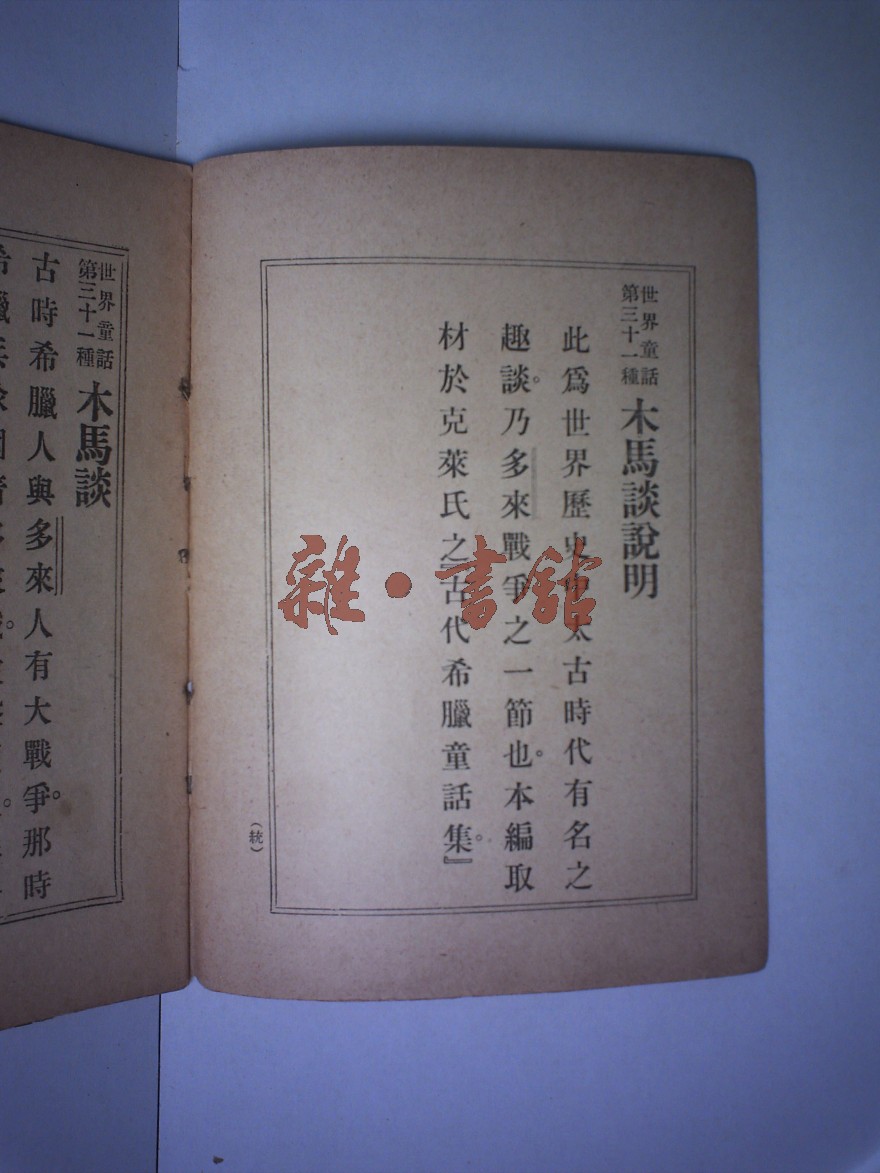 世界童話
第三十一種
木馬談說明
此爲世界歷史中太古時代有名之
趣談。乃多來戰爭之一節也。本編取
材於克萊氏之『古代希臘童話集。』
(統)
雜·書舘
世界童話
第三十一種
木馬談
古時希臘人與多來人有大戰爭。那時